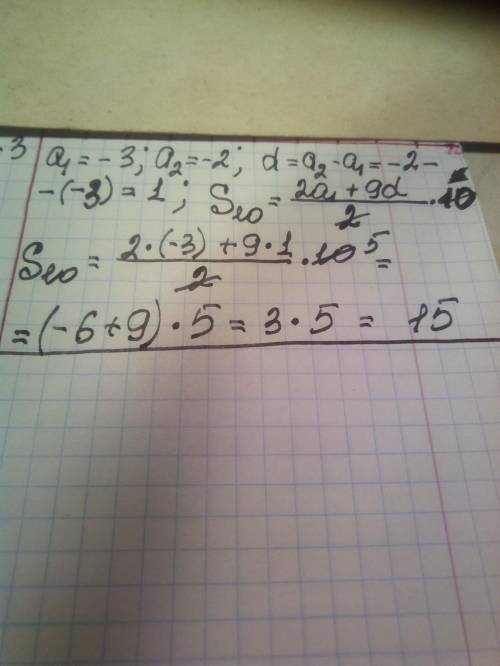 3 a₁ = -3; a₂ = -2; d = a₂ - a₁ = -2 -
-(-3) = 1; S₁₀ = (2a₁ + 9d)/2 · 10
S₁₀ = (2·(-3) + 9·1)/2 · 10 5 =
= (-6+9)·5 = 3·5 = 15